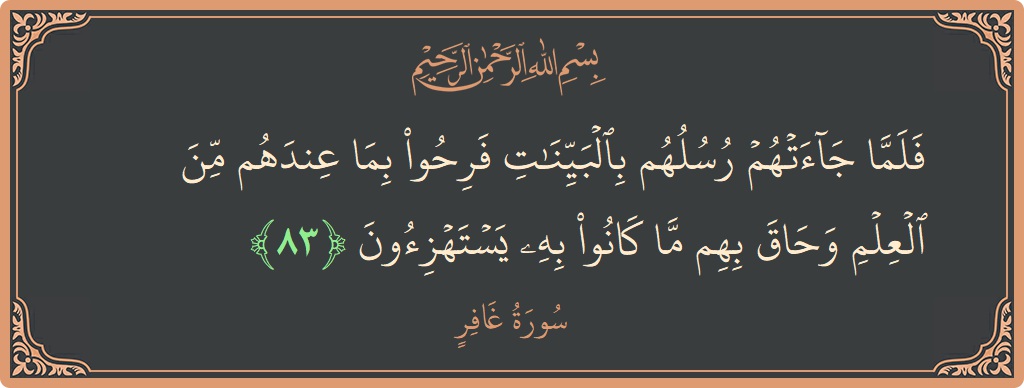 بِسْمِ اللَّهِ الرَّحْمَٰنِ الرَّحِيمِ
فَلَمَّا جَآءَتْهُمْ رُسُلُهُم بِٱلْبَيِّنَٰتِ فَرِحُوا۟ بِمَا عِندَهُم مِّنَ
ٱلْعِلْمِ وَحَاقَ بِهِم مَّا كَانُوا۟ بِهِۦ يَسْتَهْزِءُونَ ﴿٨٣﴾
سُورَةُ غَافِرٍ